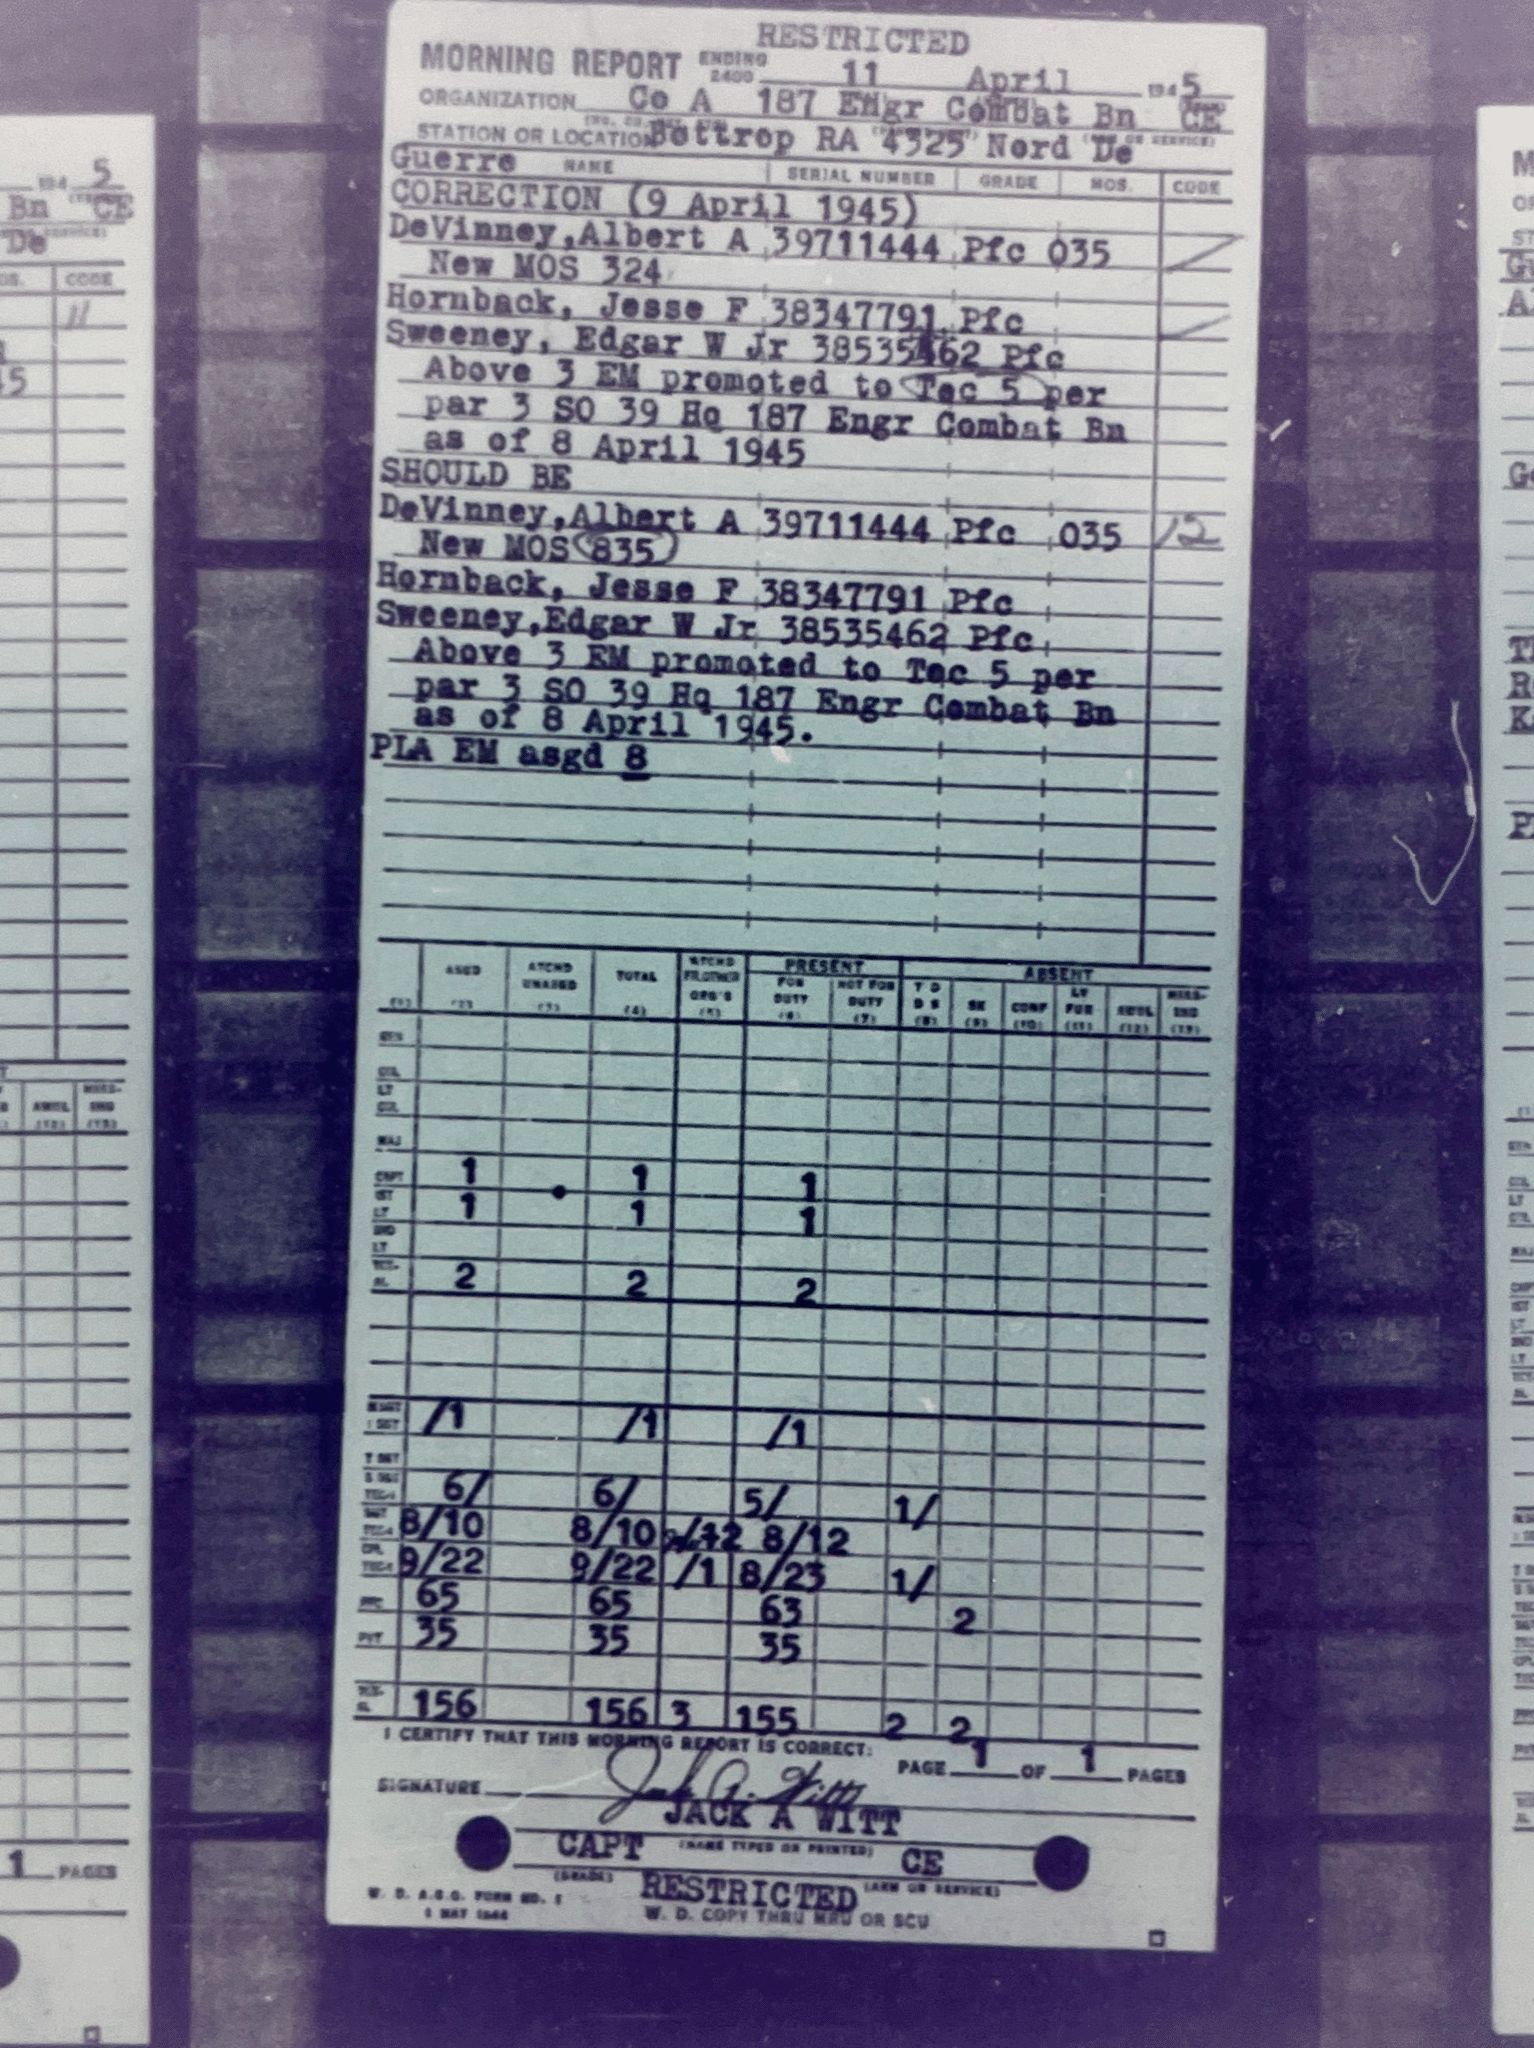 RESTRICTED
MORNING REPORT ENDING 2400 11 April 1945
ORGANIZATION Co A 187 Engr Combat Bn CE
STATION OR LOCATION Bottrop RA 4325 Nord De
Guerre NAME SERIAL NUMBER GRADE MOS. CODE
CORRECTION (9 April 1945)
DeVinney,Albert A 39711444 Pfc 035
New MOS 324
Hornback, Jesse F 38347791 Pfc
Sweeney, Edgar W Jr 38535462 Pfc
Above 3 EM promoted to Tec 5 per
par 3 SO 39 Hq 187 Engr Combat Bn
as of 8 April 1945
SHOULD BE
DeVinney,Albert A 39711444 Pfc 035 12
New MOS 835
Hornback, Jesse F 38347791 Pfc
Sweeney,Edgar W Jr 38535462 Pfc
Above 3 EM promoted to Tec 5 per
par 3 SO 39 Hq 187 Engr Combat Bn
as of 8 April 1945.
PLA EM asgd 8
PRESENT ABSENT
ASGD ATCHD UNASGD TOTAL ATCHD FR OTHER ORG'S FOR DUTY NOT FOR DUTY T D D S SK CONF LV FUR AWOL MISS-ING
(1) (2) (3) (4) (5) (6) (7) (8) (9) (10) (11) (12) (13)
GEN
COL
LT COL
MAJ
CAPT 1 1 1
1ST LT 1 1 1
2ND LT
TOT-AL 2 2 2
MSGT 1 SGT /1 /1 /1
T SGT
S SGT TEC-3 6/ 6/ 5/ 1/
SGT TEC-4 8/10 8/10 8/12
CPL TEC-5 9/22 9/22 /1 8/23 1/
PFC 65 65 63 2
PVT 35 35 35
TOT-AL 156 156 3 155 2 2
I CERTIFY THAT THIS MORNING REPORT IS CORRECT: PAGE 1 OF 1 PAGES
SIGNATURE Jack A. Witt
JACK A WITT
CAPT (NAME TYPED OR PRINTED) CE
(GRADE) RESTRICTED (ARM OR SERVICE)
W. D. A.G.O. FORM NO. 1
W. D. COPY THRU MRU OR SCU
1945
Bn CE
De
CODE
11
45
AWOL MISS-ING
(12) (13)
1 PAGES